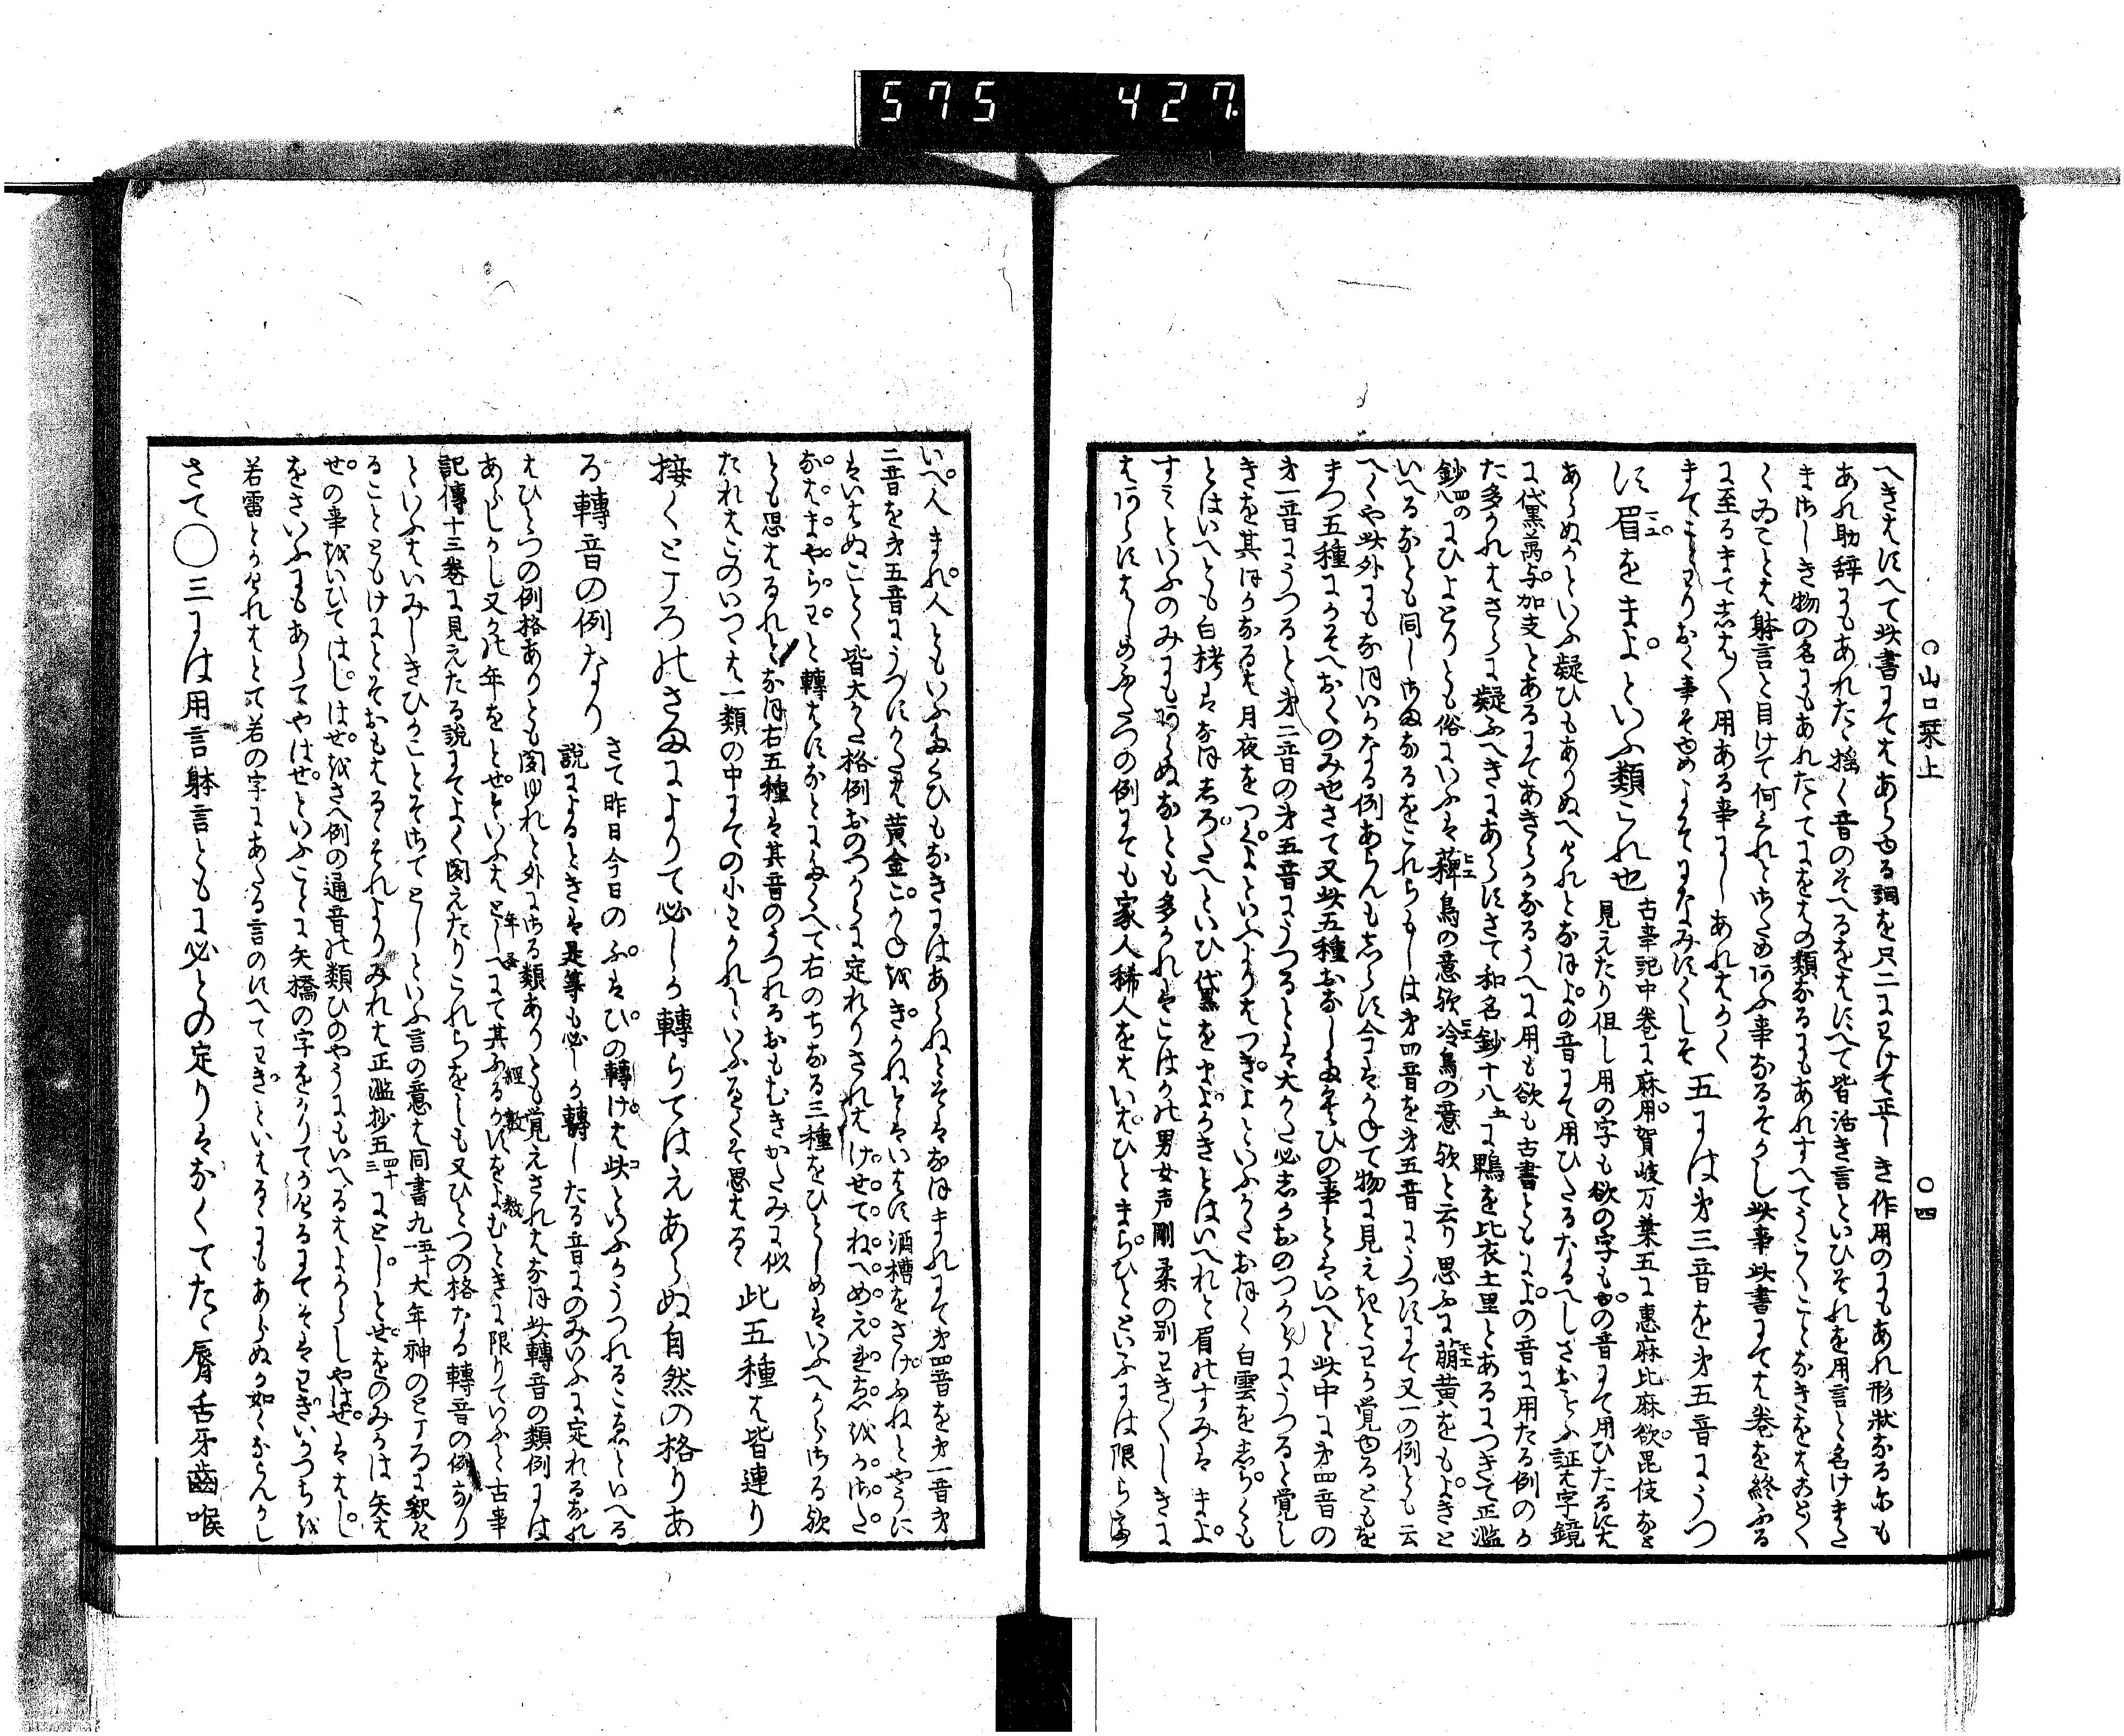 575 427.
○山口栞上 ○四
へきはすへて此書にてはあらゆる詞を只二にわけて平しき作用のにもあれ形状なる尓も
あれ助辞にもあれたゝ揺く音のそへるをはすへて皆活き言といひそれを用言と名けまた
まさしき物の名にもあれたてにをはの類なるにもあれすへてうこくことなきをはおなしく
くゐことは躰言と目けて何くれとさため云ふ事なるそかし此事此書にては巻を終ふる
に至るまてしは〳〵用ある事にしあれはかく
まてことわりおく事そゆめよそになみすくしそ 五には第三音を第五音にうつ
す眉をまよといふ類これ也
古事記中巻に麻用賀岐万葉五に恵麻比麻欲毘伎なと
見えたり但し用の字も欲の字もゆの音にて用ひたるにはあらぬかといふ疑ひもありぬへけれとなほよの音にて用ひたるなるへしさおもふ証は字鏡
に黛万与加支とあるにてあきらかなるうへに用も欲も古書ともによの音に用たる例のか
た多かれはさらに疑ふへきにあらすさて和名鈔十八に鵯を比衣土里とあるにつきて正濫
鈔四のにひよとりとも俗にいふは稗鳥の意歟冷鳥の意歟と云り思ふに萌黄をもよきと
いへるなとも同しさまなるをこれらもしは第四音を第五音にうつすにて又一の例とも云
へくや此外にもなほいかなる例あらんもしらす今はかねて物に見えきとわか覚ゆるともを
まつ五種にかそへおくのみ也さて又此五種おなしたくひの事とはいへと此中に第四音の
第一音にうつると第二音の第五音にうつるとは大かた必しかおのつからにうつると覚し
きを其ほかなるは月夜をつくよといふよりはつきよといふかたおほく白雲をしらくも
とはいへとも白栲はなほしろたへといひ黛をまよかきとはいへれと眉のすみはまよ
すミといふのみにもあらぬなとも多かれはこはかの男女声剛柔の別わき〳〵しきに
はあらすはしめふたつの例にても家人稀人をはいはひとまらひとといふには限らす
いへ人まれ人ともいふたくひもなきにはあらねとそはなほまれにて第四音を第一音第
二音を第五音にうつすかたは黄金こかねをきかねとはいはす酒槽をさけふねとやうに
はいはぬことく皆大かた格例おのつからに定れりされはけせてねへめえれゑをかさた
なはまやらわと轉はすなとにたくへて右のちなる三種をひとしめはいふへからさる歟
とも思はるれとなほ右五種は其音のうつれるおもむきかたみに似
たれはこのいつゝは一類の中にての小わかれといふるくそ思はる 此五種は皆連り
接くところのさまによりて必しか轉らてはえあらぬ自然の格りあ
る轉音の例なり
さて昨日今日のふはひの轉けは此といふかうつれるこゑといへる
説によるときは是等も必しか轉したる音にのみいふに定れるなれ
はひとつの例格ありとも聞ゆれと外にさる類ありとも覚えされはなほ此轉音の類例には
あらしかし又かの年をとせといふはとしへにて其ふるかすをよむときに限りていふと古事
記傳十三巻に見えたる説にてよく聞えたりこれらをしも又ひとつの格なる轉音の例なり
といふはいみしきひかことそさてとしといふ言の意は同書九五十大年神のところに釈は
ることともけにとそおもはるゝそれよりみれは正濫抄五四十三にとしとせをのみかは矢は
せの事をいひてはしはせをさへ例の通音の類ひのやうにもいへるはよからしやはせははし
をさいふにもあらてやはせといふことに矢橋の字をかりてかけるにてそはわさいかつちを
若雷とかけれはとて若の字にあたる言のすへてわきといはるゝにもあらぬか如くならんかし
さて◯三には用言躰言ともに必との定りはなくてたゝ脣舌牙齒喉